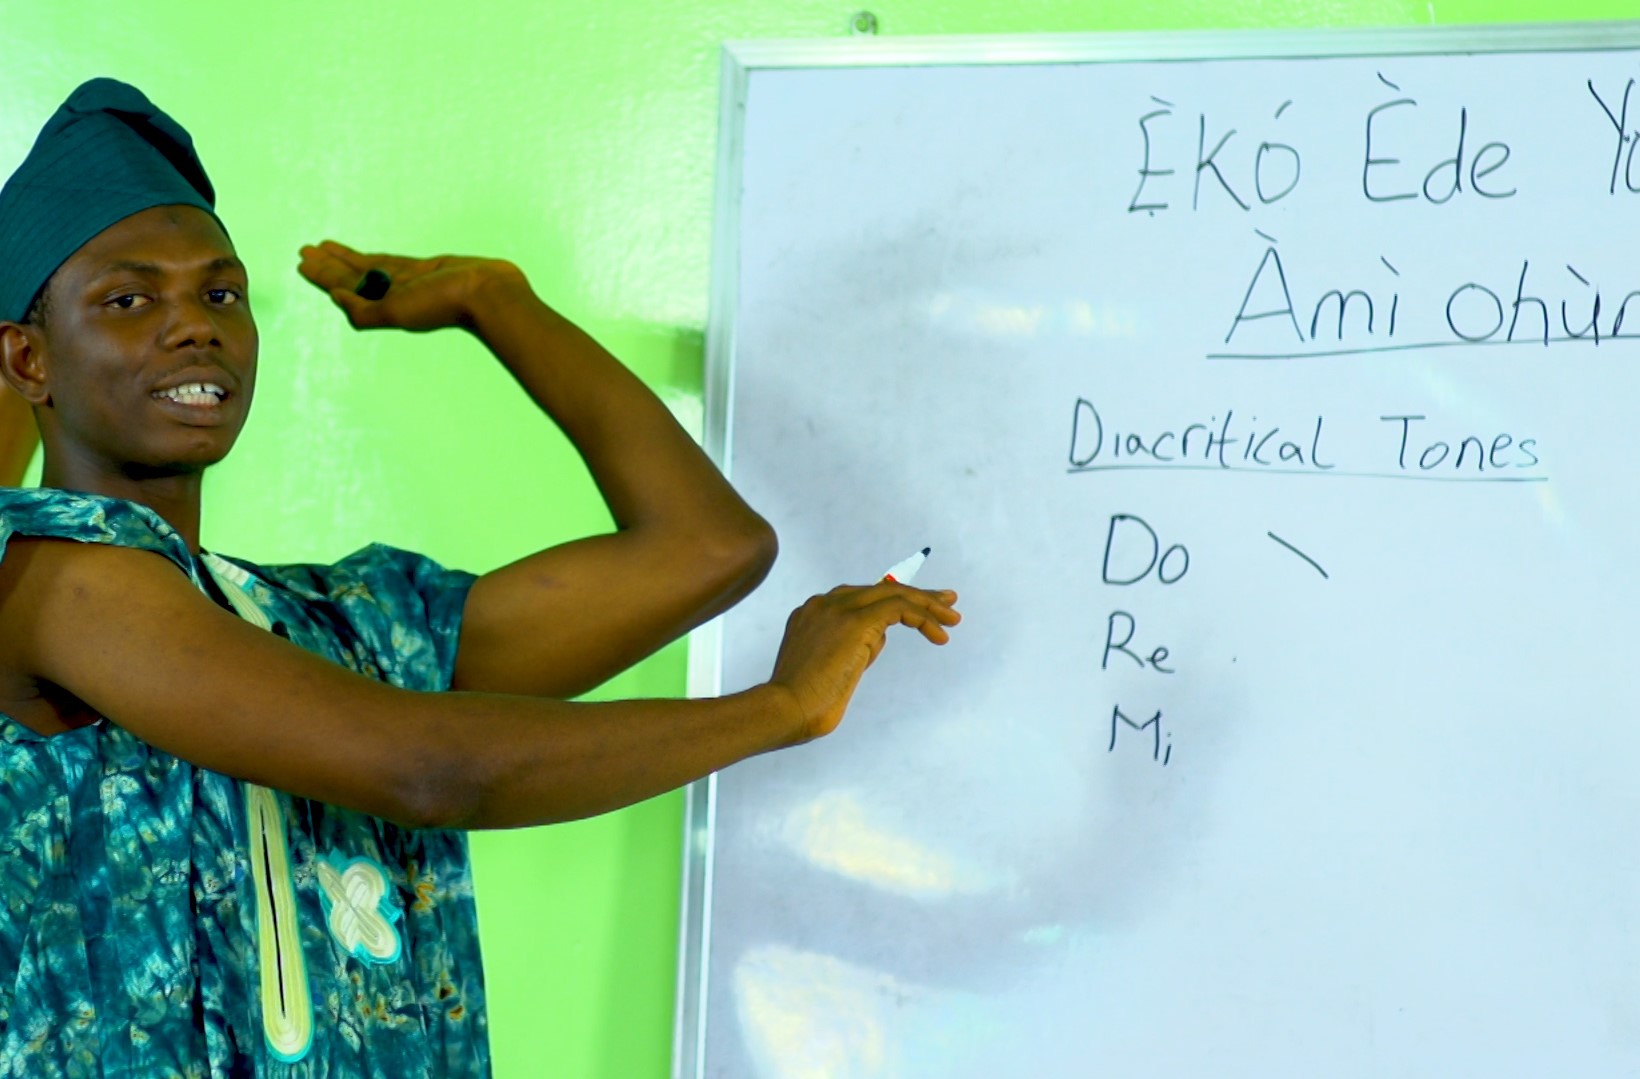 Ẹ̀kó Ède
Àmì ohùn
Diacritical Tones
Do \
Re
Mi